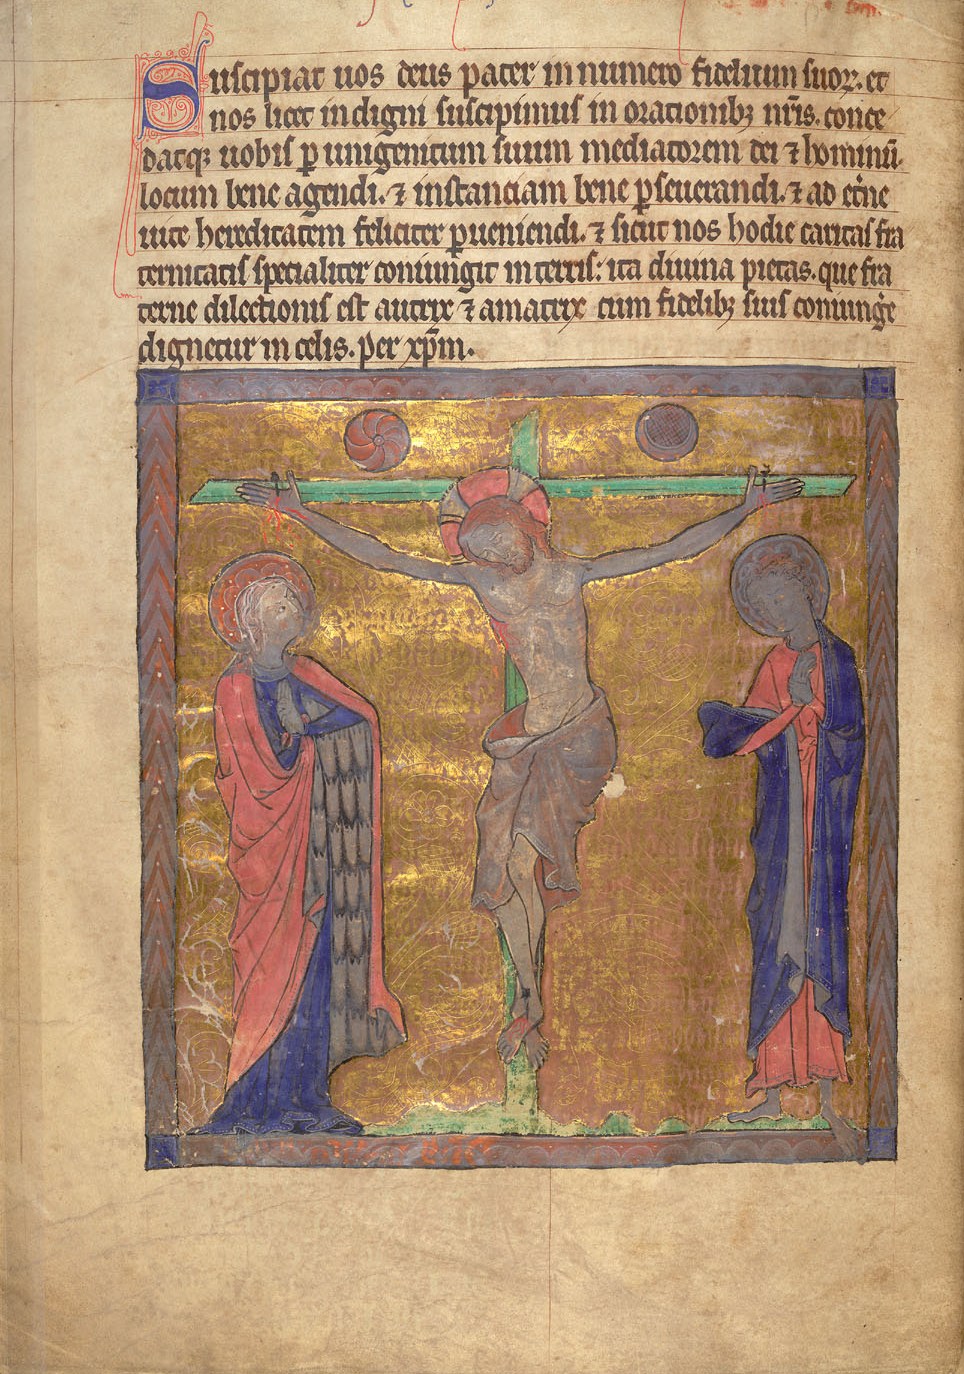 Suscipiat uos deus pater in numero fidelium suoꝝ. et
nos licet indigni suscipimus in orationibꝫ nr̄is. conce
datqꝫ uobis ꝑ unigenitum suum mediatorem dei ⁊ hominū.
locum bene agendi. ⁊ instanciam bene ꝑseuerandi. ⁊ ad et̄ne
uite hereditatem feliciter ꝑueniendi. ⁊ sicut nos hodie caritas fra
ternitatis specialiter coniungit in terris: ita diuina pietas. que fra
terne dilectionis est auctrix ⁊ amatrix cum fidelibꝫ suis coniunḡe
dignetur in celis. Per xp̄m.